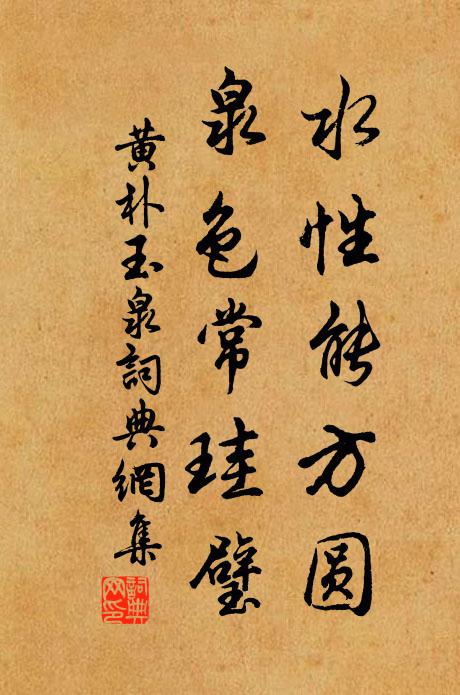 水性能方圆
泉色常珪璧
黄朴玉泉詞典網集
詞典
网印